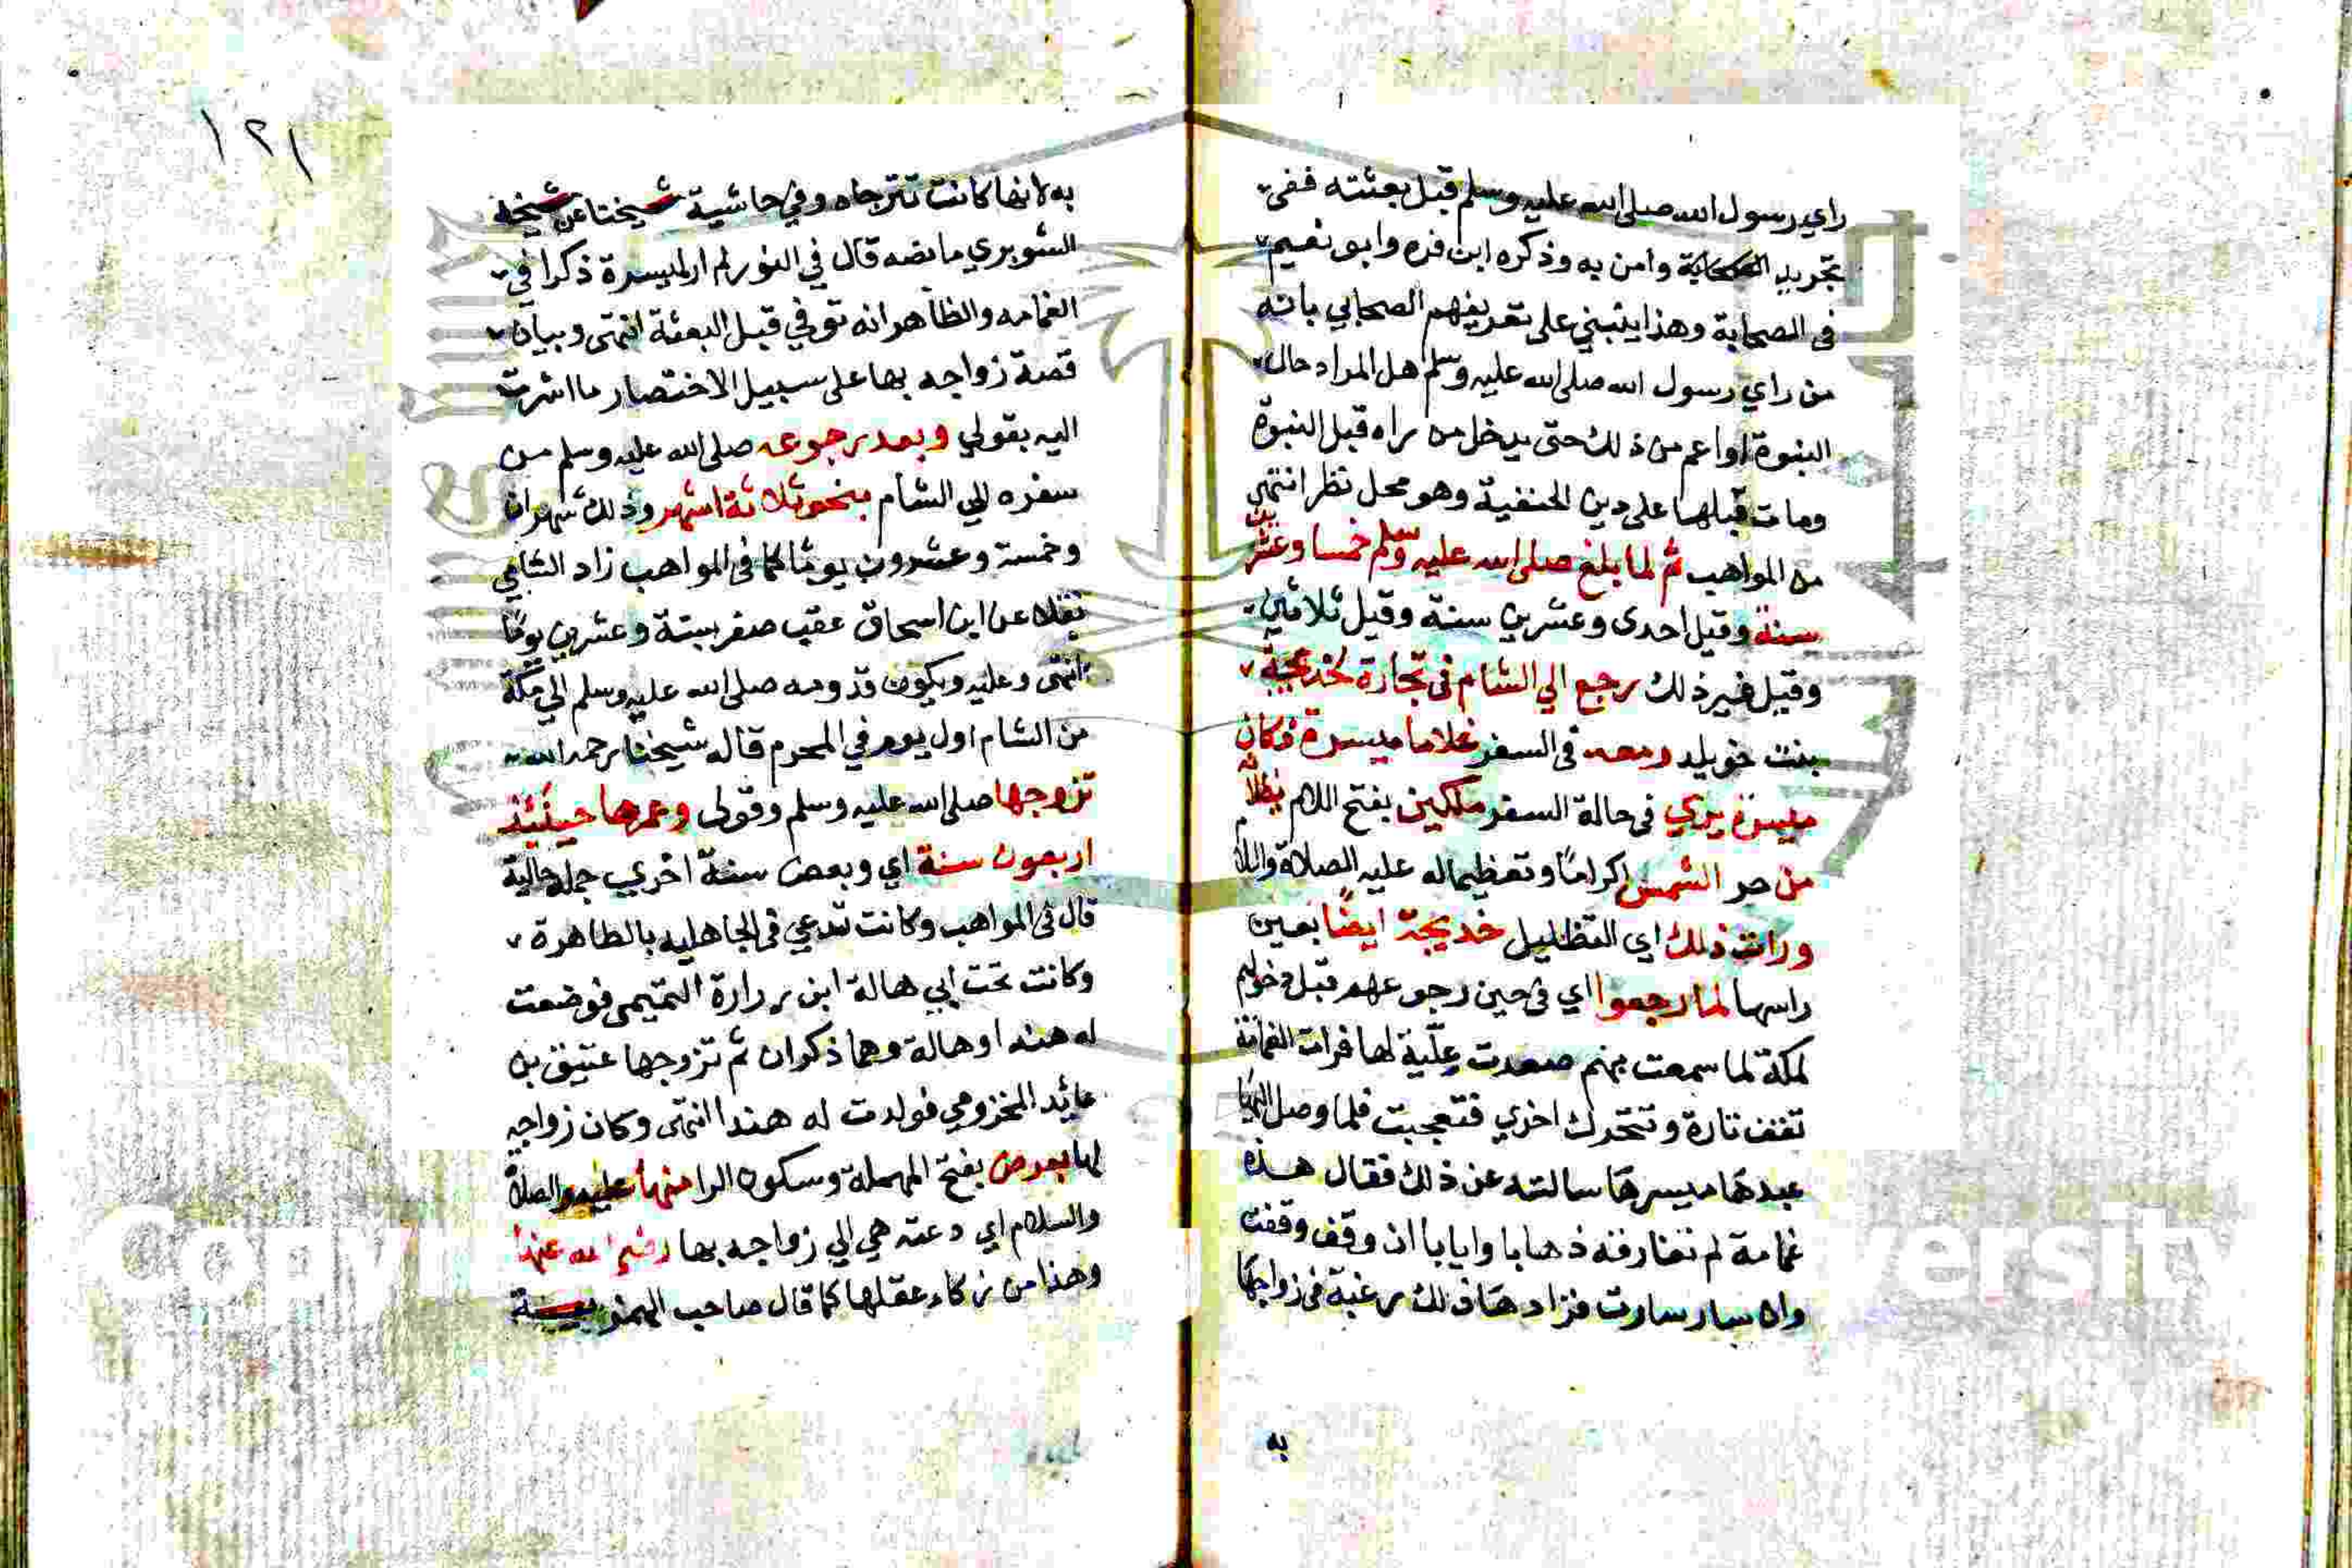 راي رسول الله صلى الله عليه وسلم قبل بعثته ففي
تجريد الصحابة وامن به وذكره ابن فره وابو نعيم
في الصحابة وهذا ينبني على تعريفهم الصحابي بانه
من راي رسول الله صلى الله عليه وسلم هل المراد حال
النبوة او اعم من ذلك حتى يدخل من راه قبل النبوة
ومات قبلها على دين الحنفية وهو محل نظر انتهى
من المواهب ثم لما بلغ صلى الله عليه وسلم خمسا وعشرين
سنة وقيل احدى وعشرين سنة وقيل ثلاثين
وقيل غير ذلك رجع الي الشام في تجارة لخديجة
بنت خويلد ومعه في السفر غلاما ميسرة فكان
ميسرة يري في حالة السفر ملكين بفتح اللام يظلانه
من حر الشمس اكراما وتعظيما له عليه الصلاة والسلام
ورات ذلك اي التظليل خديجة ايضا بعين
راسها لما رجعوا اي في حين رجوعهم قبل دخولهم
لمكة لما سمعت بهم صعدت علّية لها فرات الغمامة
تقف تارة وتتحرك اخري فتعجبت فلما وصل اليها
عبدها ميسرها سالته عن ذلك فقال هذه
غمامة لم تفارقه ذهابا وايابا ان وقف وقفت
وان سار سارت فزادها ذلك رغبة في زواجها
به
١٢١
به لانها كانت تترجاه وفي حاشية شيخنا عن شيخه
الشوبري ما نصه قال في النور لم ار لميسرة ذكرا في
الغمامه والظاهر انه توفي قبل البعثة انتهى وبيان
قصة زواجه بها على سبيل الاختصار ما اشرت
اليه بقولي وبعد رجوعه صلى الله عليه وسلم من
سفره الي الشام بنحو ثلاثة اشهر وذلك شهران
وخمسة وعشرون يوما كما في المواهب زاد الشامي
نقلا عن ابن اسحاق عقب صفر بستة وعشرين يوما
انتهى وعليه ويكون قدومه صلى الله عليه وسلم الي مكة
من الشام اول يوم في المحرم قاله شيخنا رحمه الله
تزوجها صلى الله عليه وسلم وقولى وعمرها حينئذ
اربعون سنة اي وبعض سنة اخري جملة حالية
قال في المواهب وكانت تدعي في الجاهليه بالطاهرة
وكانت تحت ابي هالة ابن زرارة التميمى فوضعت
له هندا وهالة وهما ذكران ثم تزوجها عتيق بن
عائد المخزومي فولدت له هندا انتهى وكان زواجه
لها بعرض بفتح المهملة وسكون الرا منها عليه الصلاة
والسلام اي دعته هي الي زواجه بها رضي الله عنها
وهذا من زكاء عقلها كما قال صاحب الهمزية